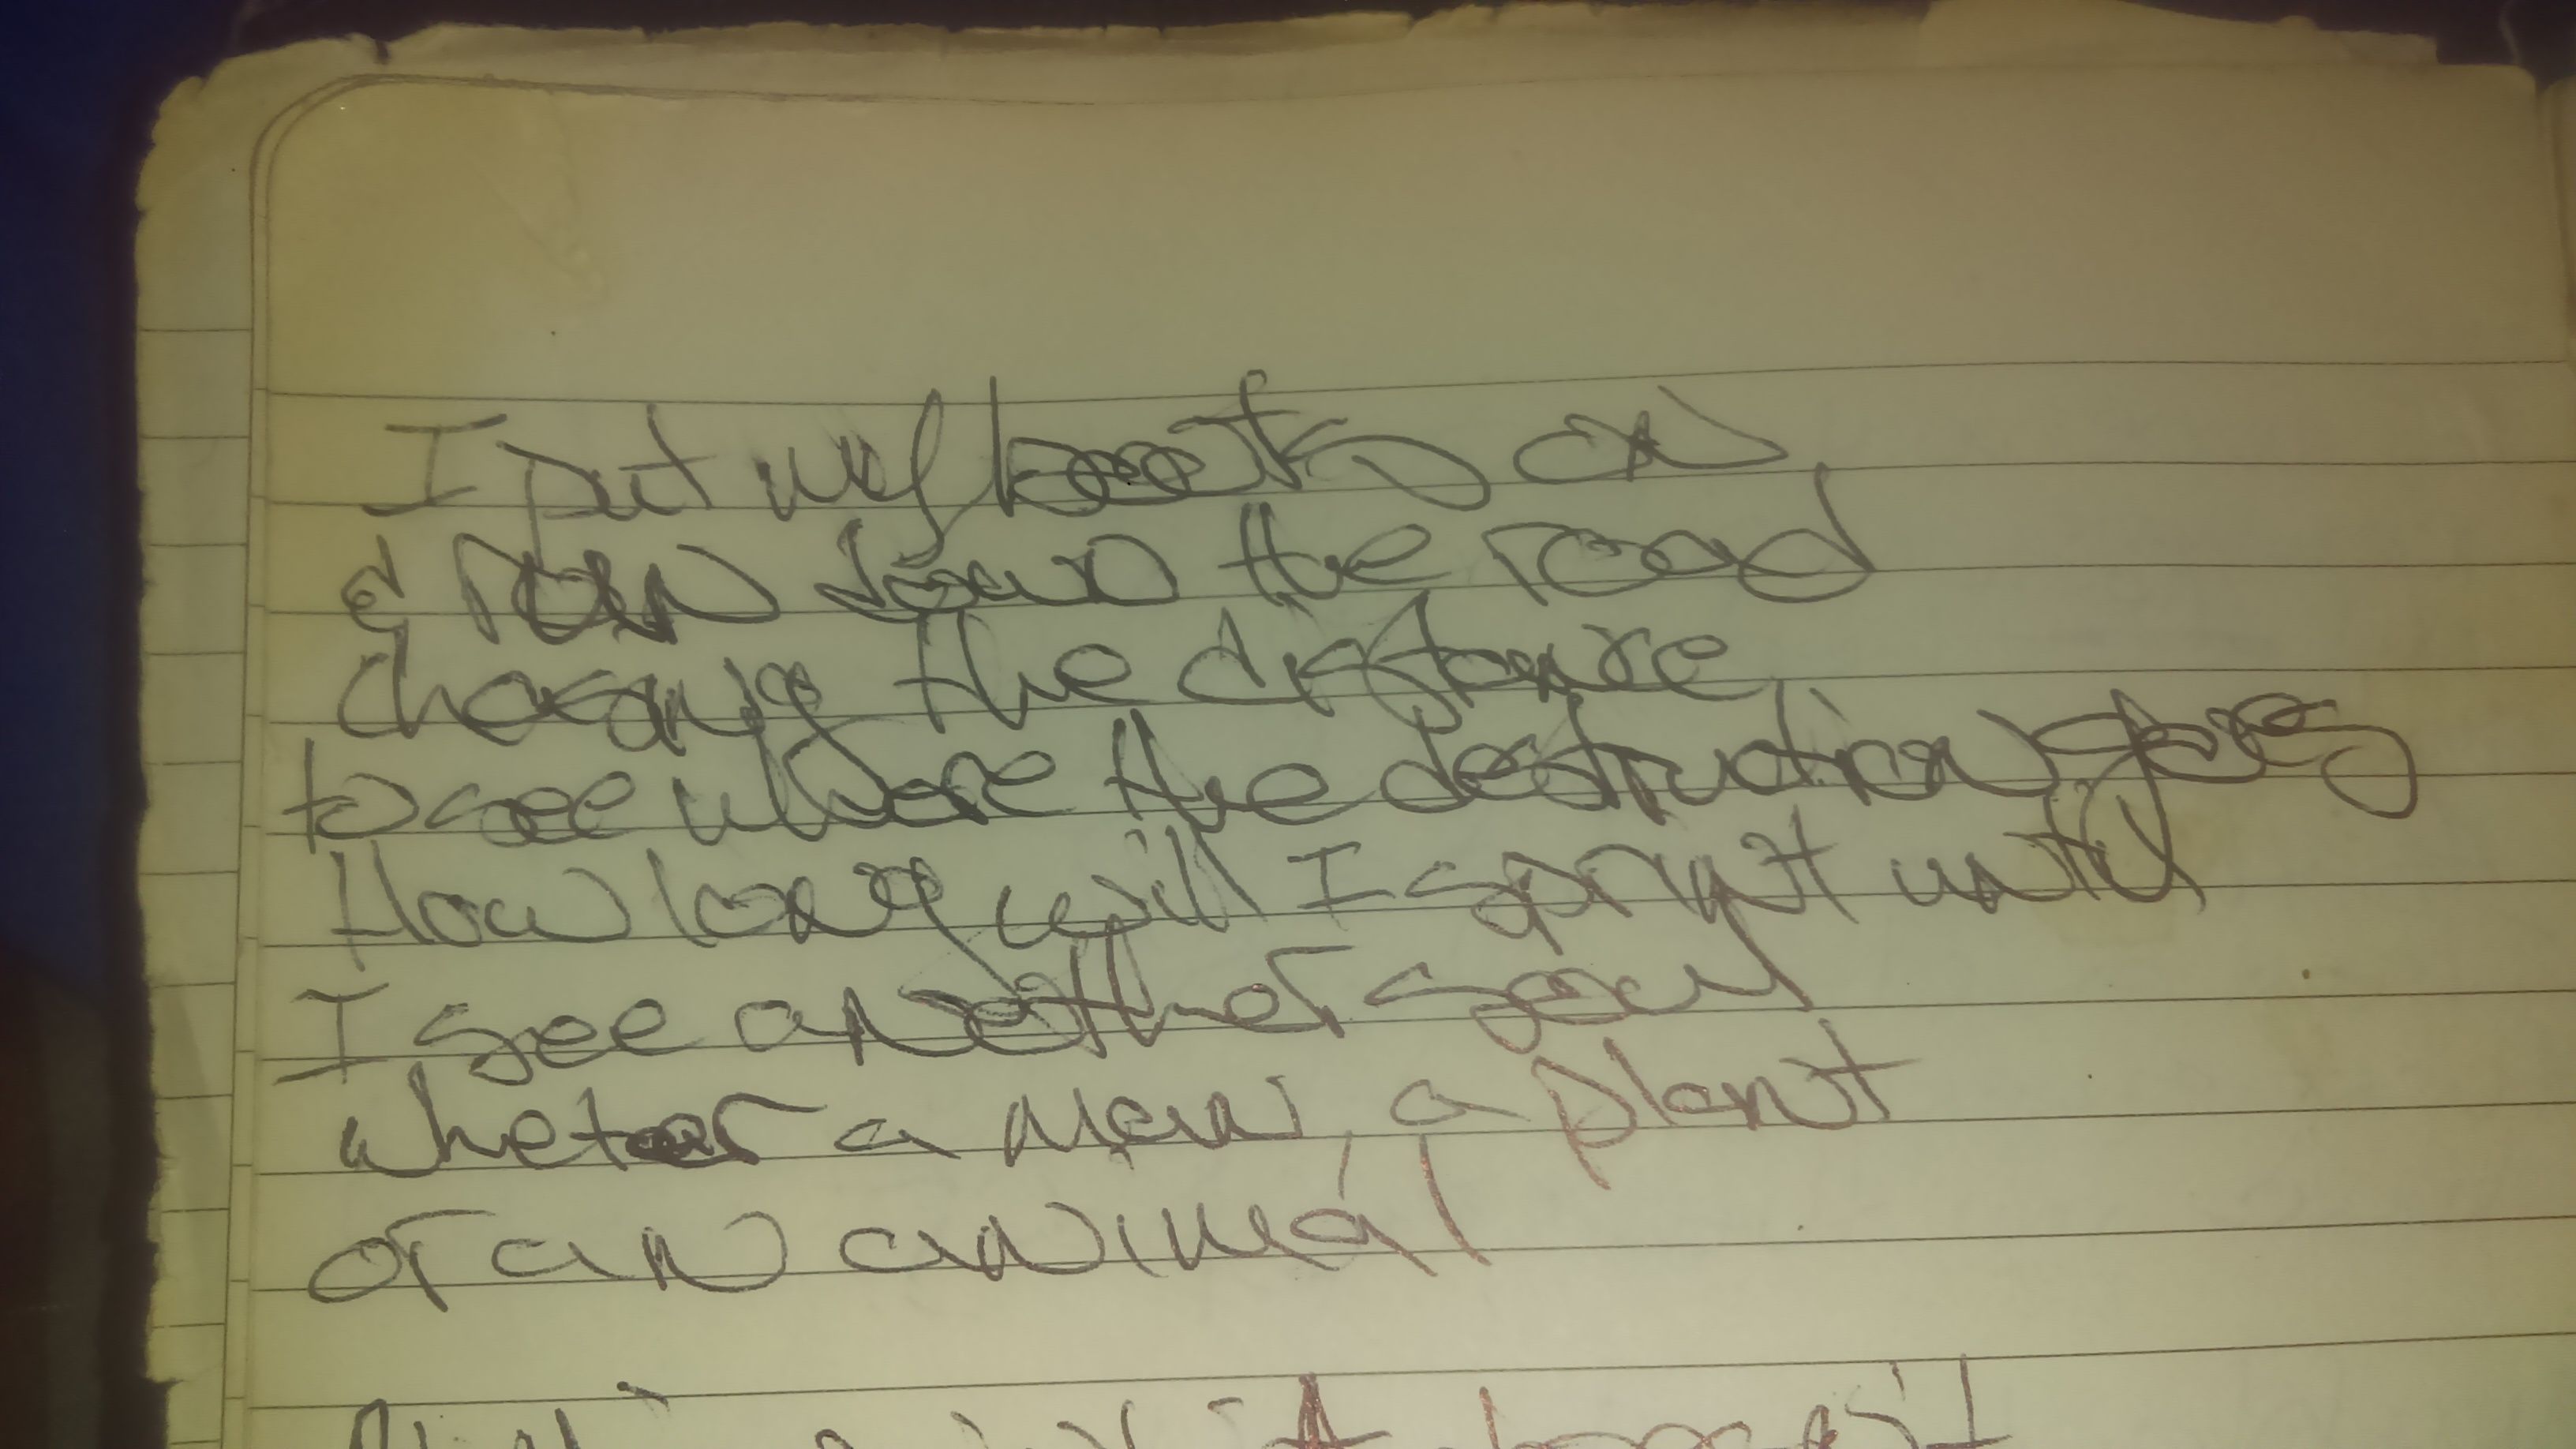 I put my boots on
& ran down the road
chasing the distance
to see where the destruction goes
How long will I sprint until
I see another soul
wheter a man, a plant
or an animal
it doesn't